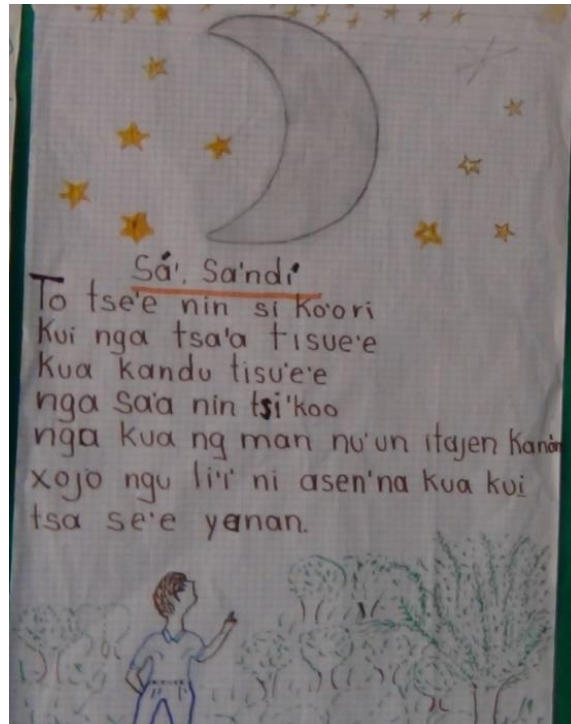 Sá', Sa'ndí'
To tse'e nin si ko'ori
Kui nga tsa'a tisue'e
Kua kandu tisu'e'e
nga sa'a nin tsi'koo
nga kua ng man nu'un itajen kanàn
xojo ngu li'i' ni asen'na kua kui
tsa se'e yanan.